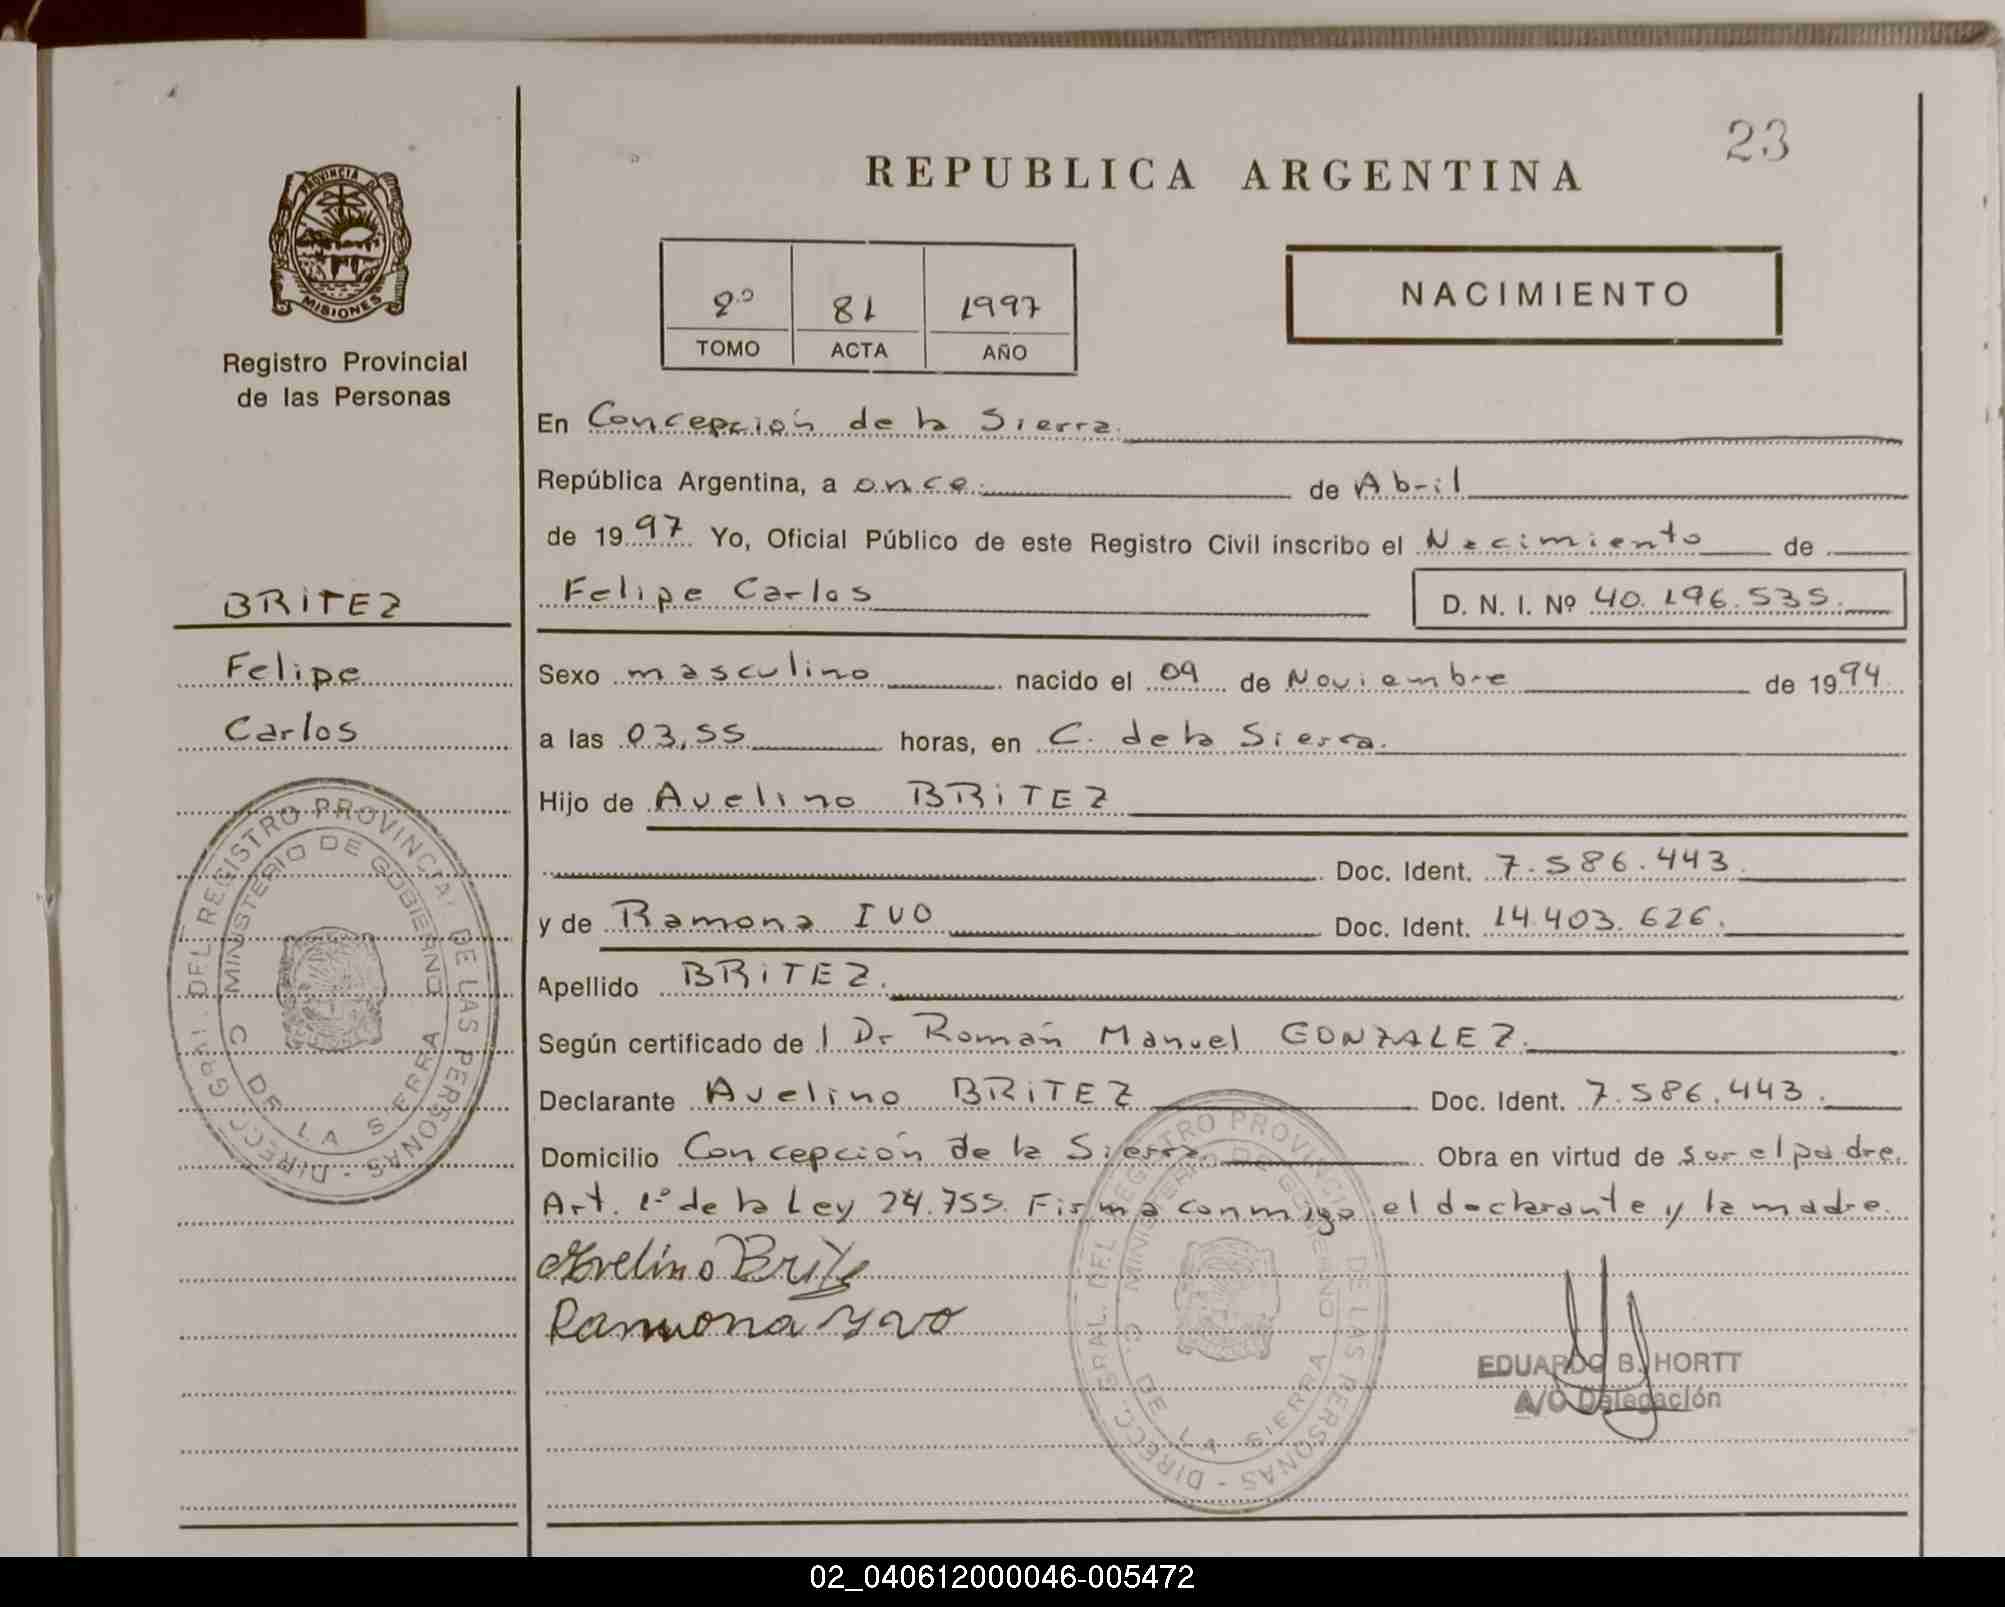 23
REPUBLICA ARGENTINA
PROVINCIA DE
MISIONES
Registro Provincial
de las Personas
2º 81 1997
TOMO ACTA AÑO
NACIMIENTO
En Concepción de la Sierra.
República Argentina, a once. de Abril
de 1997 Yo, Oficial Público de este Registro Civil inscribo el Nacimiento de
BRITEZ
Felipe Carlos D. N. I. Nº 40.196.535.
Felipe
Sexo masculino nacido el 09 de Noviembre de 1994
Carlos
a las 03,55 horas, en C. de la Sierra.
Hijo de Avelino BRITEZ
Doc. Ident. 7.586.443.
y de Ramona IVO Doc. Ident. 14.403.626.
Apellido BRITEZ.
Según certificado de l Dr Román Manuel GONZALEZ.
Declarante Avelino BRITEZ Doc. Ident. 7.586.443.
Domicilio Concepción de la Sierra. Obra en virtud de ser el padre.
Art. 1º de la Ley 24.755. Firma conmigo el declarante y la madre.
Avelino Britez
Ramona Yvo
EDUARDO B. HORTT
A/C Delegación
DIRECC. GRAL. DEL REGISTRO PROVINCIAL DE LAS PERSONAS -
MINISTERIO DE GOBIERNO
C. DE LA SIERRA
DIRECC. GRAL. DEL REGISTRO PROVINCIAL DE LAS PERSONAS -
MINISTERIO DE GOBIERNO
C. DE LA SIERRA
02_040612000046-005472